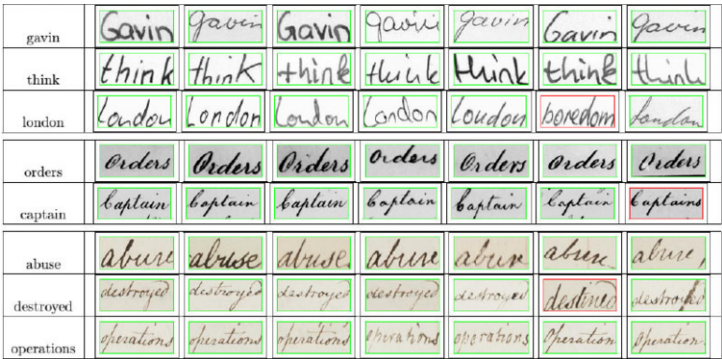 gavin Gavin Gavin Gavin Gavin Gavin Gavin Gavin
think think think think think think think think
london London London London London London boredom London
orders Orders Orders Orders Orders Orders Orders Orders
captain Captain Captain Captain Captain Captain Captain Captains
abuse abuse abuse abuse. abuse abuse abuse abuse,
destroyed destroyed destroyed destroyed destroyed destroyed destined destroyed
operations operations operations operations operations operations Operation Operation,